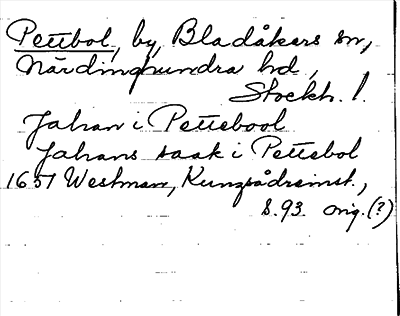 Pettbol, by, Bladåkers sn,
Närdinghundra hd,
Stockh. l.
Johan i Pettebool
Johans saak i Pettebol
1651 Westman, Kungsådreinst.,
s. 93. orig. (?)